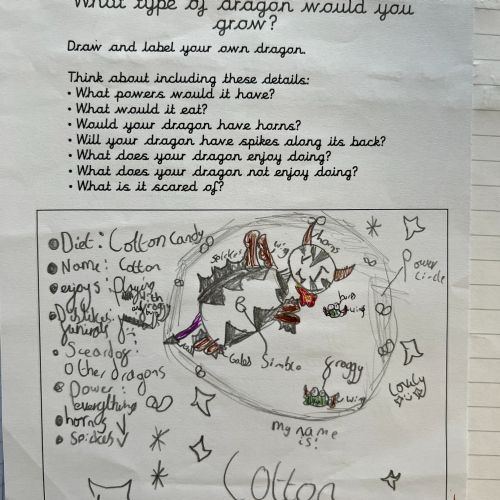 What type of dragon would you
grow?
Draw and label your own dragon.
Think about including these details:
• What powers would it have?
• What would it eat?
• Would your dragon have horns?
• Will your dragon have spikes along its back?
• What does your dragon enjoy doing?
• What does your dragon not enjoy doing?
• What is it scared of?
• Diet: Cotton Candy
• Name: Cotton
enjoys: Playing
with
• Dislikes:
• Scardof:
Other dragons
• Power:
everything
• horns ✓
• spickes ✓
spickes
wing
horns
Power
circle
bum
wing
tail
Simblo
froggy
wing
Lovely
my name
is:
Cotton